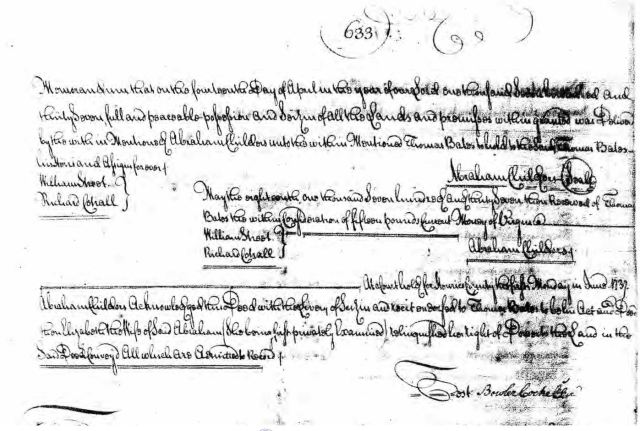 633
Memorandum that on the fourteenth Day of April in the year of our Lord one thousand Seven hundred And
thirty Seven full and peaceable possession and Seizin of all the Lands and premises within granted was Deliver'd
by the within Mentioned Abraham Childers unto the within Mentioned Thomas Bates to hold to the Said Thomas Bates
and Assigns for ever
Abraham Childers Seal
William Street
Richard Cotrall
May the eighteenth one thousand Seven hundred And thirty Seven then Received of Thomas
Bates the within Consideration of fifteen pounds Current Money of Virginia
William Street
Richard Cotrall
Abraham Childers
At a Court held for Henrico County the first Monday in June 1737
Abraham Childers Acknowledged this Deed with the Livery of Seizin and receit endorsed to Thomas Bates to be his Act and Deed
Elizabeth the Wife of Said Abraham (She being first privately Examined) relinquished her right of Dower to the Land in the
Said Deed Convey'd All which are Admitted to Record
Test Bowler Cocke